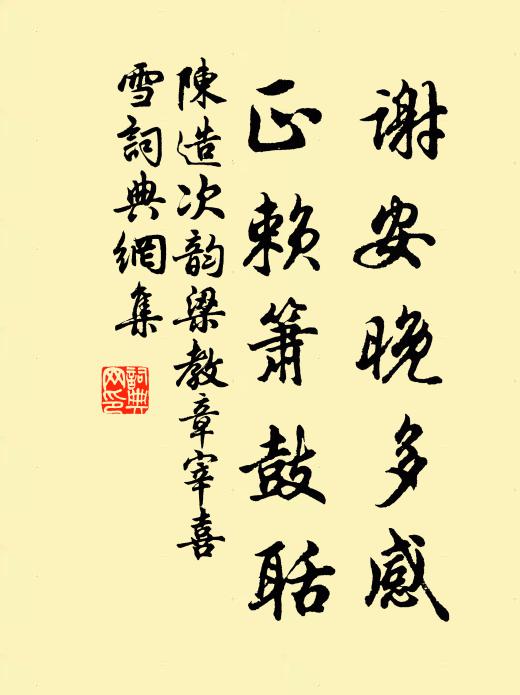 谢安晚多感
正赖箫鼓聒
陳造次韵梁教章宰喜
雪詞典網集
詞典网印